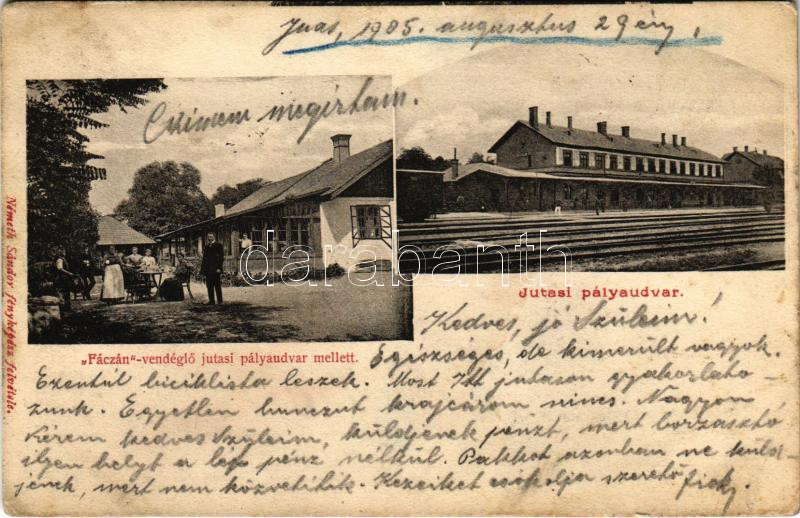 Jutas, 1905. augusztus 29 én,
Czimem megirtam.
Németh Sándor fényképész felvétele.
darabanth
Jutasi pályaudvar.
„Fáczán"-vendéglő jutasi pályaudvar mellett.
Kedves, jó Szüleim!
Egészséges, de kimerült vagyok.
Ezentúl biciklista leszek. Most itt jutason gyakorlato-
zunk. Egyetlen huncut krajcárom nincs. Nagyon
kérem kedves Szüleim, küldjenek pénzt, mert borzasztó
ilyen helyt a pénz nélkül. Pakkot azonban ne küld-
jenek, mert nem közvetitik. Kezeiket csókolja szerető